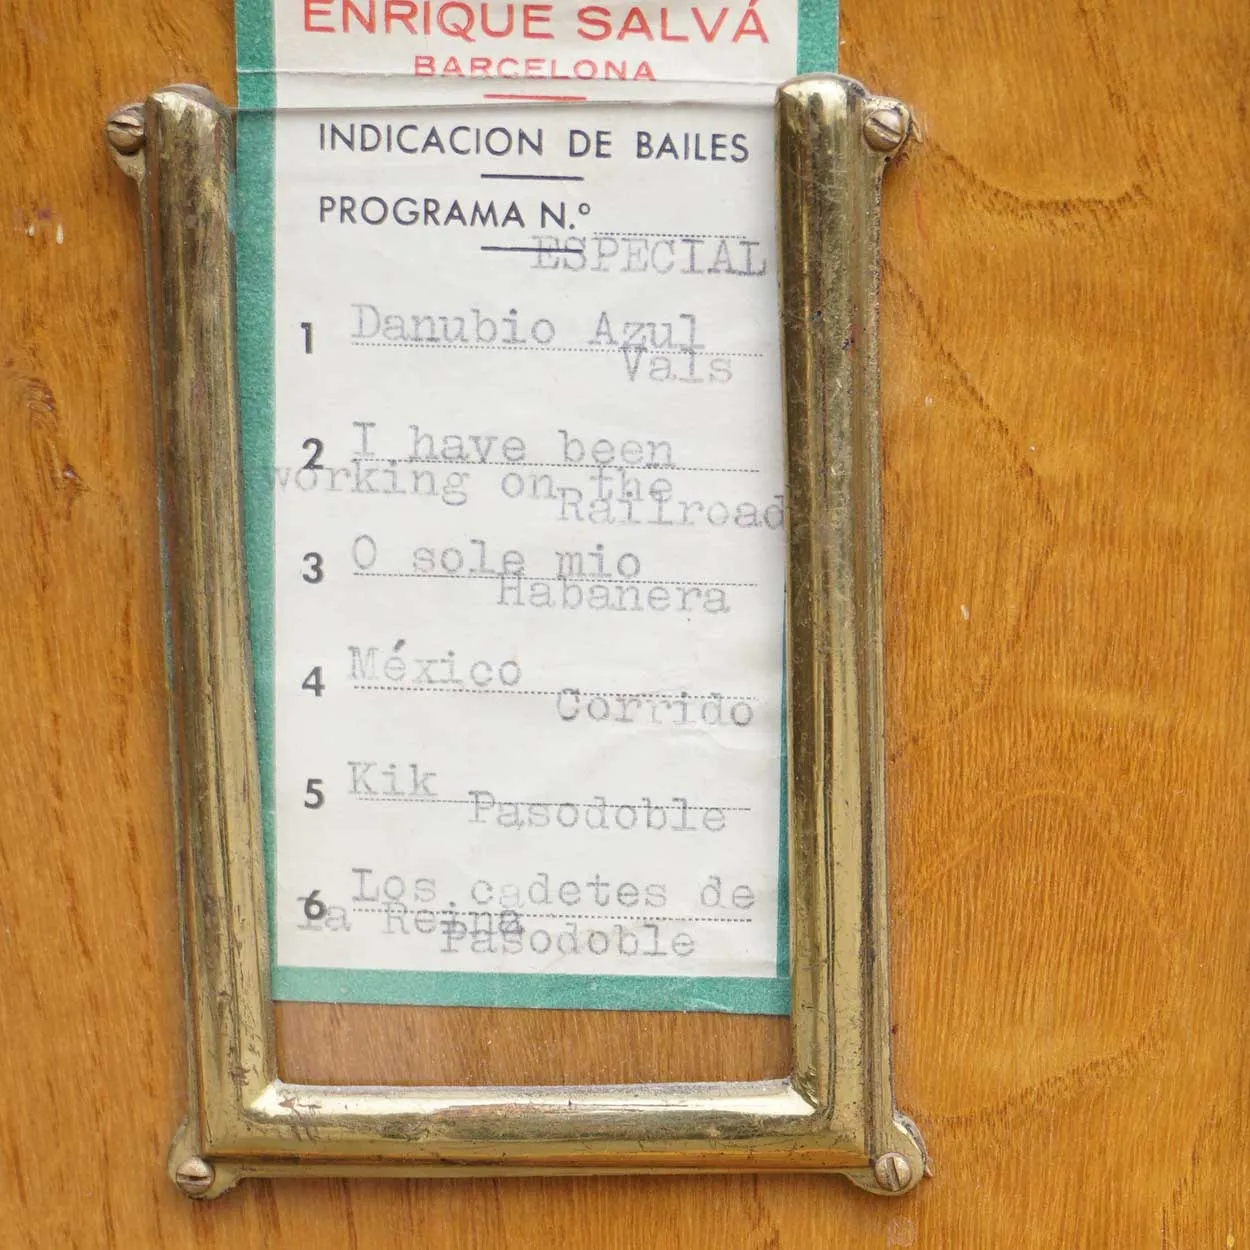 ENRIQUE SALVÁ
BARCELONA
INDICACION DE BAILES
PROGRAMA N.º
ESPECIAL
1 Danubio Azul
Vals
2 I have been
working on the
Railroad
3 O sole mio
Habanera
4 México
Corrido
5 Kik
Pasodoble
6 Los cadetes de
la Reina
Pasodoble